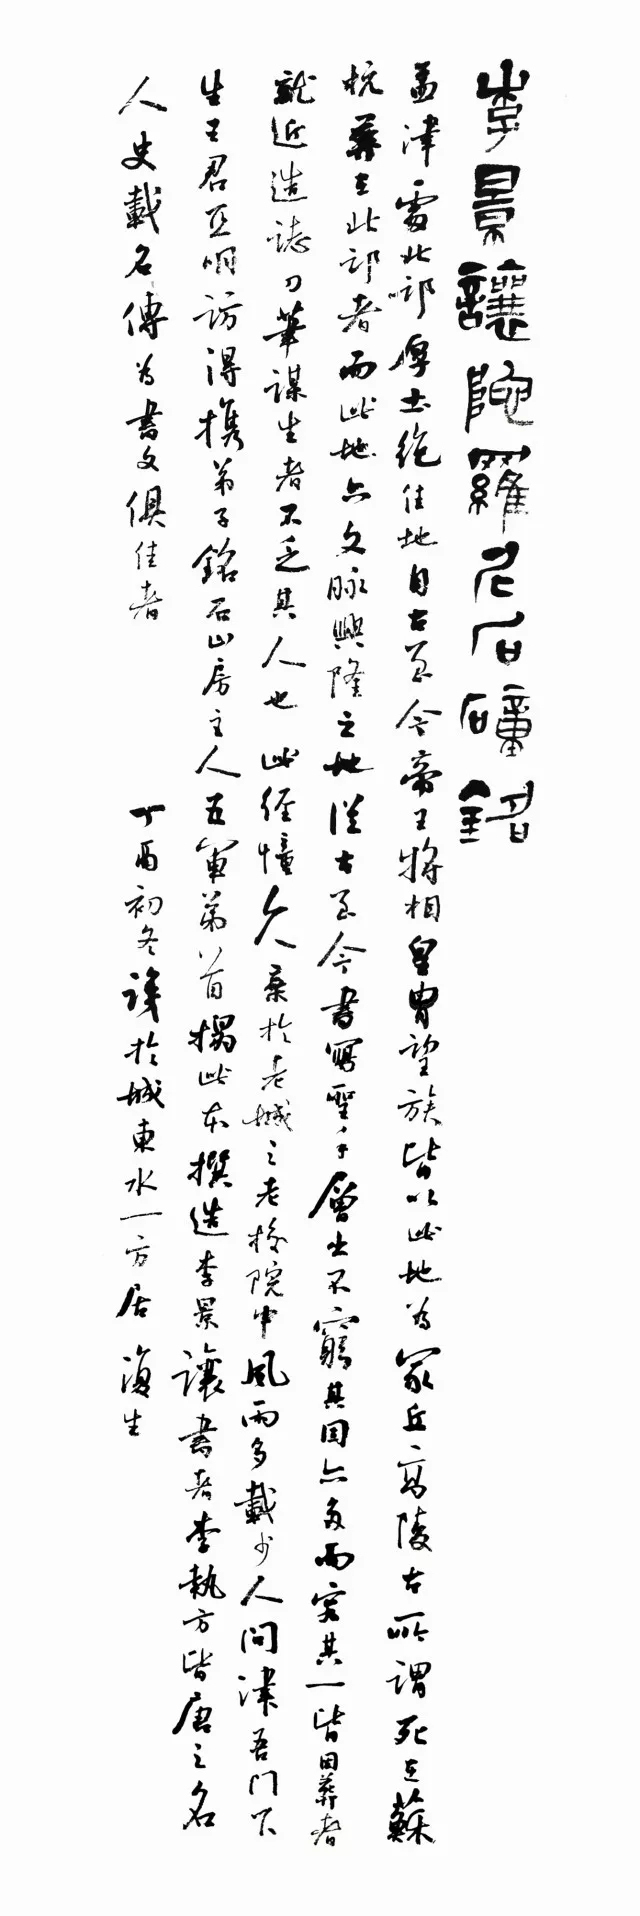 李景讓陀羅尼石幢銘
孟津處北邙厚土絶佳地自古至今帝王將相皇胄望族皆以此地為冢丘高陵古所謂死在蘇
杭葬在此邙者而此地亦文脉興隆之地從古至今書寫聖手層出不窮其因亦多而究其一皆因葬者
就近造誌刀筆謀生者不乏其人也此經幢久棄於老城之老校院中風雨多載少人問津吾門下
生王君亞明訪得携弟子銘石山房主人五軍弟八首搨此本撰造李景讓書者李執方皆唐之名
人史載名傳為書文俱佳者
丁酉初冬護於城東水一方居 復生